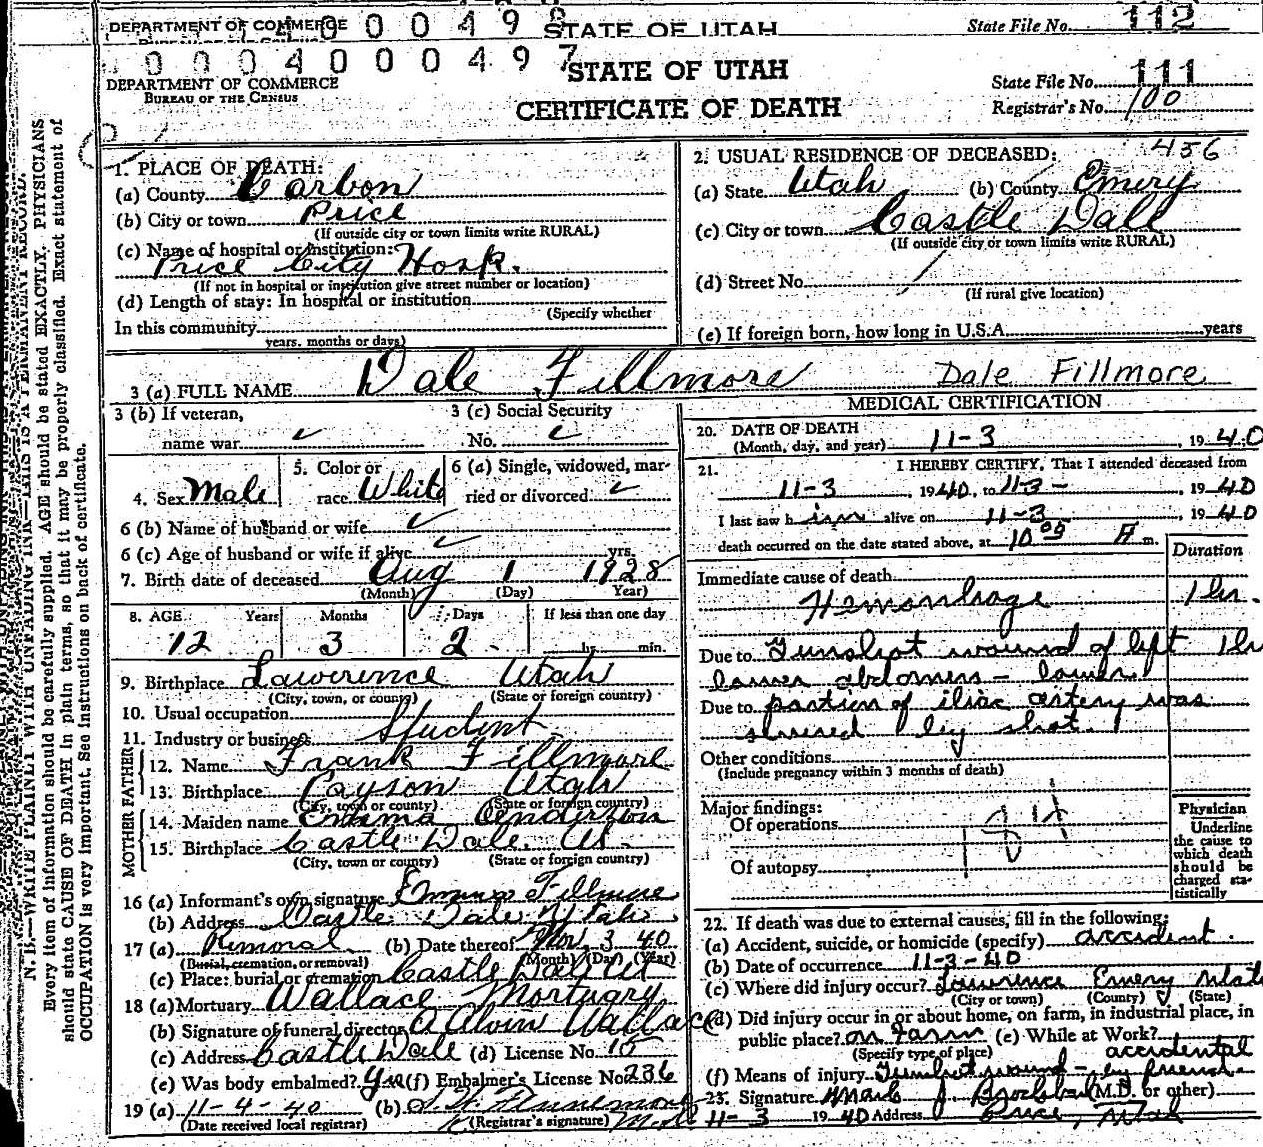 DEPARTMENT OF COMMERCE 00498 STATE OF UTAH State File No. 112
0004000497
DEPARTMENT OF COMMERCE STATE OF UTAH State File No. 111
BUREAU OF THE CENSUS CERTIFICATE OF DEATH Registrar's No. 100
N. B.—WRITE PLAINLY WITH UNFADING INK—THIS IS A PERMANENT RECORD.
Every item of information should be carefully supplied. AGE should be stated EXACTLY. PHYSICIANS
should state CAUSE OF DEATH in plain terms, so that it may be properly classified. Exact statement of
OCCUPATION is very important. See Instructions on back of certificate.
1. PLACE OF DEATH:
(a) County Carbon
(b) City or town Price
(If outside city or town limits write RURAL)
(c) Name of hospital or institution:
Price City Hosp.
(If not in hospital or institution give street number or location)
(d) Length of stay: In hospital or institution
(Specify whether
In this community
years, months or days)
2. USUAL RESIDENCE OF DECEASED: 456
(a) State Utah (b) County Emery
(c) City or town Castle Dale
(If outside city or town limits write RURAL)
(d) Street No.
(If rural give location)
(e) If foreign born, how long in U.S.A. years
3 (a) FULL NAME Dale Fillmore Dale Fillmore
3 (b) If veteran,
name war
3 (c) Social Security
No.
4. Sex Male
5. Color or
race White
6 (a) Single, widowed, mar-
ried or divorced
6 (b) Name of husband or wife
6 (c) Age of husband or wife if alive yrs.
7. Birth date of deceased Aug 1 1928
(Month) (Day) Year)
8. AGE Years Months Days If less than one day
12 3 2 hr. min.
9. Birthplace Lawerence Utah
(City, town, or county) (State or foreign country)
10. Usual occupation
11. Industry or business Student
FATHER
12. Name Frank Fillmore
13. Birthplace Payson Utah
(City, town or county) (State or foreign country)
MOTHER
14. Maiden name Emma
15. Birthplace Castle Dale, Ut.
(City, town or county) (State or foreign country)
16 (a) Informant's own signature Emma Fillmore
(b) Address Castle Dale Utah
17 (a) Removal (b) Date thereof Nov. 3 40
(Burial, cremation, or removal) (Month) (Day) (Year)
(c) Place: burial or cremation Castle Dale Ut
18 (a) Mortuary Wallace Mortuary
(b) Signature of funeral director A Alvin Wallace
(c) Address Castle Dale (d) License No. 15
(e) Was body embalmed? Yes (f) Embalmer's License No. 236
19 (a) 11-4-40 (b)
(Date received local registrar) (Registrar's signature)
MEDICAL CERTIFICATION
20. DATE OF DEATH
(Month, day, and year) 11-3, 1940
21. I HEREBY CERTIFY, That I attended deceased from
11-3, 1940, to 11-3-, 1940
I last saw him alive on 11-3, 1940
death occurred on the date stated above, at 10 05 A m.
Duration
Immediate cause of death
Hemorrhage 1 hr.
Due to Gunshot wound of left 1 hr
lower abdomen - lower
Due to portion of iliac artery was
severed by shot.
Other conditions
(Include pregnancy within 3 months of death)
Major findings:
Of operations
Of autopsy
Physician
Underline
the cause to
which death
should be
charged sta-
tistically
22. If death was due to external causes, fill in the following:
(a) Accident, suicide, or homicide (specify) accident.
(b) Date of occurrence 11-3-40
(c) Where did injury occur? Lawrence Emery Utah
(City or town) (County) (State)
(d) Did injury occur in or about home, on farm, in industrial place, in
public place? on Farm (e) While at Work?
(Specify type of place) accidental
(f) Means of injury Gunshot wound - by friend.
23. Signature (M.D. or other)
11-3 1940 Address Price, Utah